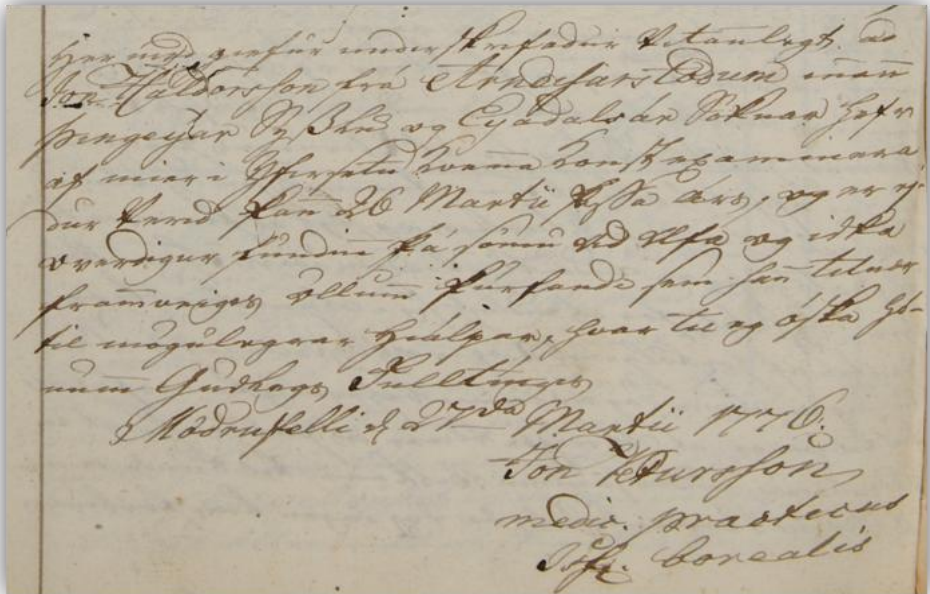 Her med giefur underskrifadur Vitanlegt, ad
Jon Haldorsson frá Arndisarstödum innan
Þingeyar Syßlu og Eyadalsár Soknar hefr
af mier i Yfirsetu kvenna konst examinera-
dur Verid þan 26 Martii þessa árs, og er ej
overdugur fundinn þá sömu ad æfa og idka
frammveigis öllumm þurfandi sem han til nær
til mögulegrar hialpar, hvar til eg óska hö-
numm Gudlegs Fulltings
Mödrufelli d 27da Martii 1776.
Jon Petursson
medic. practicus
Isl. borealis